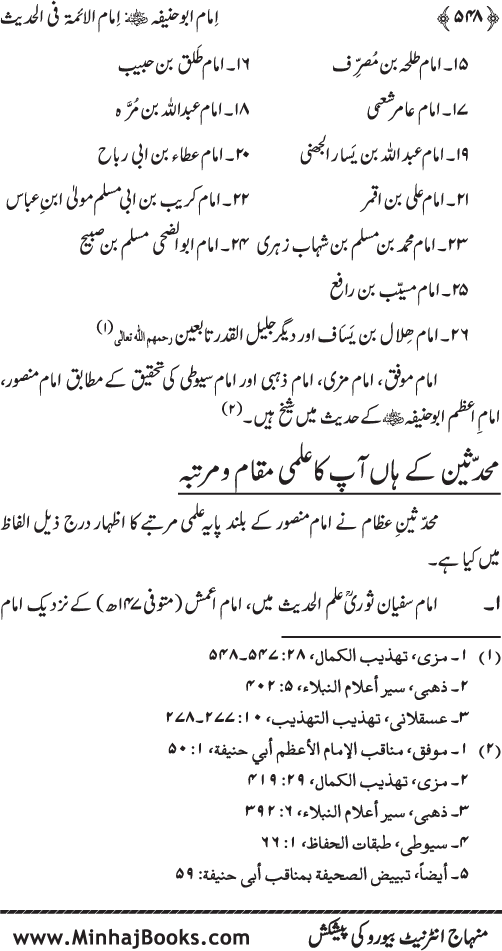 ﴿۵۴۸﴾ اِمام ابو حنیفہ ﷜ اِمام الائمۃ فی الحدیث
۱۵۔ امام طلحہ بن مُصرِّف ۱۶۔ امام طَلق بن حبیب
۱۷۔ امام عامر شعبی ۱۸۔ امام عبداللہ بن مُرَّہ
۱۹۔ امام عبد اللہ بن یَسار الجھنی ۲۰۔ امام عطاء بن ابی رباح
۲۱۔ امام علی بن اقمر ۲۲۔ امام کریب بن ابی مسلم مولیٰ ابنِ عباس
۲۳۔ امام محمد بن مسلم بن شہاب زہری ۲۴۔ امام ابو الضحی مسلم بن صبیح
۲۵۔ امام مسیّب بن رافع
۲۶۔ امام ھِلال بن یَسَاف اور دیگر جلیل القدر تابعین رحمهم الله تعالى (۱)
امام موفق، امام مزی، امام ذہبی اور امام سیوطی کی تحقیق کے مطابق امام منصور،
امامِ اعظم ابو حنیفہ ﷜ کے حدیث میں شیخ ہیں۔ (۲)
محدّثین کے ہاں آپ کا علمی مقام و مرتبہ
محدّثینِ عظام نے امام منصور کے بلند پایہ علمی مرتبے کا اظہار درج ذیل الفاظ
میں کیا ہے۔
۱۔ امام سفیان ثوریؒ علم الحدیث میں، امام اعمش (متوفی ۱۴۷ھ) کے نزدیک امام
(۱) ۱۔ مزی، تهذيب الكمال، ۲۸: ۵۴۷۔۵۴۸
۲۔ ذهبی، سير أعلام النبلاء، ۵: ۴۰۲
۳۔ عسقلانی، تهذيب التهذيب، ۱۰: ۲۷۷۔۲۷۸
(۲) ۱۔ موفق، مناقب الإمام الأعظم أبي حنيفة، ۱: ۵۰
۲۔ مزی، تهذيب الكمال، ۲۹: ۴۱۹
۳۔ ذهبی، سير أعلام النبلاء، ۶: ۳۹۲
۴۔ سيوطی، طبقات الحفاظ، ۱: ۶۶
۵۔ أيضاً، تبييض الصحيفة بمناقب أبی حنيفة: ۵۹
منہاج انٹرنیٹ بیورو کی پیشکش www.MinhajBooks.com